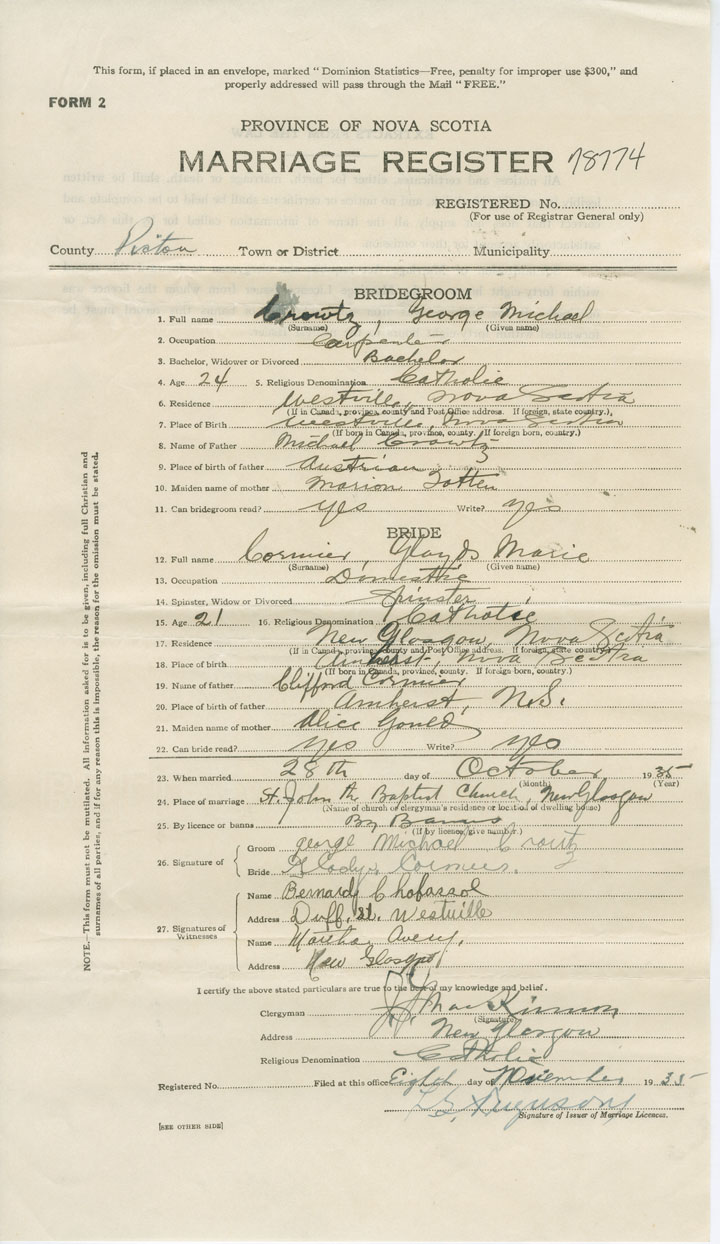 This form, if placed in an envelope, marked "Dominion Statistics—Free, penalty for improper use $300," and
properly addressed will pass through the Mail "FREE."
FORM 2
PROVINCE OF NOVA SCOTIA
MARRIAGE REGISTER 78774
REGISTERED No.
(For use of Registrar General only)
County Pictou Town or District Municipality
BRIDEGROOM
1. Full name Crowtz, George Michael
(Surname) (Given name)
2. Occupation Carpenter
3. Bachelor, Widower or Divorced Bachelor
4. Age 24 5. Religious Denomination Catholic
6. Residence Westville, Nova Scotia
(If in Canada, province, county and Post Office address. If foreign, state country.)
7. Place of Birth Westville, Nova Scotia
(If born in Canada, province, county. If foreign born, country.)
8. Name of Father Michael Crowtz
9. Place of birth of father Austrian
10. Maiden name of mother Marion Totten
11. Can bridegroom read? yes Write? yes
BRIDE
12. Full name Cormier, Gladys Marie
(Surname) (Given name)
13. Occupation Domestic
14. Spinster, Widow or Divorced Spinster
15. Age 21 16. Religious Denomination Catholic
17. Residence New Glasgow, Nova Scotia
(If in Canada, province, county and Post Office address. If foreign, state country)
18. Place of Birth Amherst, Nova Scotia
(If born in Canada, province, county. If foreign born, country.)
19. Name of father Clifford Cormier
20. Place of birth of father Amherst, N.S.
21. Maiden name of mother Alice Gould
22. Can bride read? yes Write? yes
23. When married 28th day of October 1935
(Month) (Year)
24. Place of marriage St. John the Baptist Church, New Glasgow
(Name of church or clergyman's residence or location of dwelling house)
25. By licence or banns By Banns
(If by licence, give number.)
26. Signature of
Groom george Michael Croutz
Bride Gladys Cormier.
27. Signatures of Witnesses
Name Bernard Chafassol
Address Duff. st. Westville
Name Martha Avery,
Address New Glasgow
I certify the above stated particulars are true to the best of my knowledge and belief.
Clergyman MacKinnon
(Signature)
Address New Glasgow
Religious Denomination Catholic
Registered No. Filed at this office Eighth day of November 1935
Ferguson
Signature of Issuer of Marriage Licences.
[SEE OTHER SIDE]
NOTE.—This form must not be mutilated. All information asked for is to be given, including full Christian and
surnames of all parties, and if for any reason this is impossible, the reason for the omission must be stated.